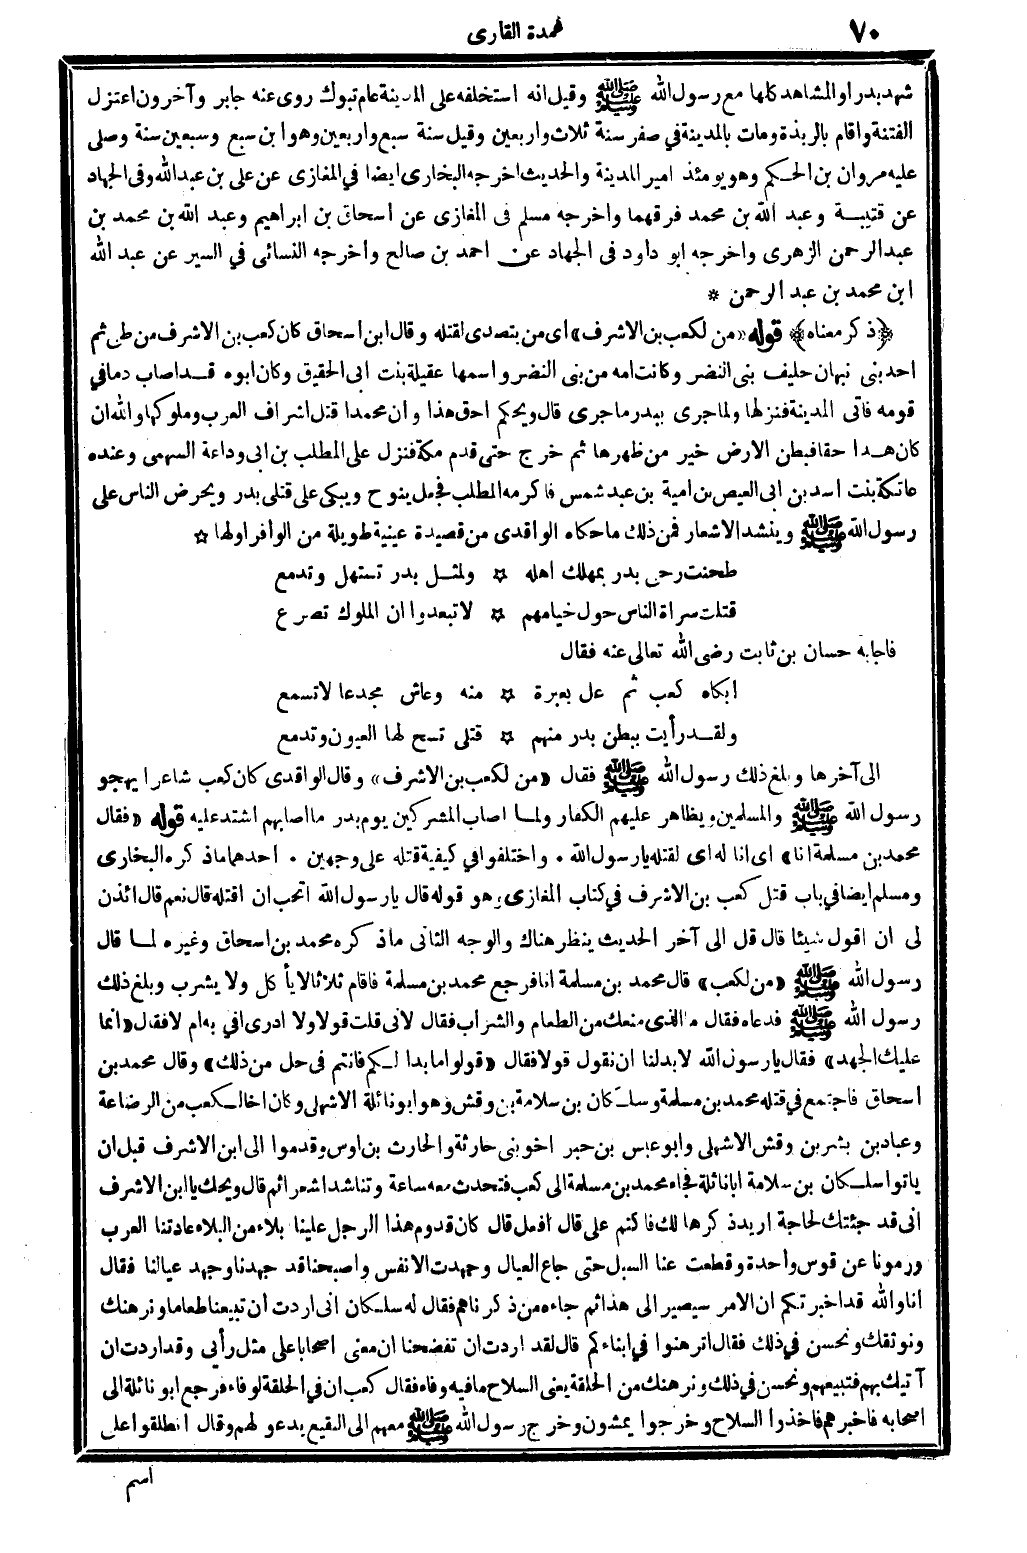 ٧٠
عمدة القارى
شهد بدرا والمشاهد كلها مع رسول الله ﷺ وقيل انه استخلفه على المدينة عام تبوك روى عنه جابر وآخرون اعتزل
الفتنة واقام بالربذة ومات بالمدينة في صفر سنة ثلاث واربعين وقيل سنة سبع واربعين وهو ابن سبع وسبعين سنة وصلى
عليه مروان بن الحكم وهو يومئذ امير المدينة والحديث اخرجه البخارى ايضا في المغازى عن على بن عبدالله وفى الجهاد
عن قتيبة وعبد الله بن محمد فرقهما واخرجه مسلم فى المغازى عن اسحاق بن ابراهيم وعبد الله بن محمد بن
عبدالرحمن الزهرى واخرجه ابو داود فى الجهاد عن احمد بن صالح وأخرجه النسائى في السير عن عبد الله
ابن محمد بن عبد الرحمن *
﴿ذكر معناه﴾ قوله «من لكعب بن الاشرف» اى من يتصدى لقتله وقال ابن اسحاق كان كعب بن الاشرف من طى ثم
احد بنى نبهان حليف بنى النضر وكانت امه من بنى النضر واسمها عقيلة بنت ابى الحقيق وكان ابوه قد اصاب دما في
قومه فاتى المدينة فنزلها ولما جرى ببدر ما جرى قال ويحكم احق هذا وان محمدا قتل اشراف العرب وملوكها والله ان
كان هذا حقا فبطن الارض خير من ظهرها ثم خرج حتى قدم مكة فنزل على المطلب بن ابى وداعة السهمى وعنده
عاتكة بنت اسد بن ابى العيص بن امية بن عبد شمس فاكرمه المطلب فجعل ينوح ويبكى على قتلى بدر ويحرض الناس على
رسول الله ﷺ وينشد الاشعار فمن ذلك ما حكاه الواقدى من قصيدة عينية طويلة من الوافر اولها ☆
طحنت رحى بدر بمهلك اهله ☆ ولمثل بدر تستهل وتدمع
قتلت سراة الناس حول خيامهم ☆ لا تبعدوا ان الملوك تصرع
فاجابه حسان بن ثابت رضى الله تعالى عنه فقال
ابكاه كعب ثم عل بعبرة ☆ منه وعاش مجدعا لا تسمع
ولقد رأيت ببطن بدر منهم ☆ قتلى تسح لها العيون وتدمع
الى آخرها وبلغ ذلك رسول الله ﷺ فقال «من لكعب بن الاشرف» وقال الواقدى كان كعب شاعرا يهجو
رسول الله ﷺ والمسلمين ويظاهر عليهم الكفار ولما اصاب المشركين يوم بدر ما اصابهم اشتد عليه قوله «فقال
محمد بن مسلمة انا» اى انا له اى لقتله يا رسول الله ۰ واختلفوا في كيفية قتله على وجهين ۰ احدهما ما ذكره البخارى
ومسلم ايضا في باب قتل كعب بن الاشرف في كتاب المغازى وهو قوله قال يا رسول الله اتحب ان اقتله قال نعم قال ائذن
لى ان اقول شيئا قال قل الى آخر الحديث ينظر هناك والوجه الثانى ما ذكره محمد بن اسحاق وغيره لما قال
رسول الله ﷺ «من لكعب» قال محمد بن مسلمة انا فرجع محمد بن مسلمة فاقام ثلاثا لا يأكل ولا يشرب وبلغ ذلك
رسول الله ﷺ فدعاه فقال ما الذى منعك من الطعام والشراب فقال لانى قلت قولا ولا ادرى افي به ام لا فقال «انما
عليك الجهد» فقال يا رسول الله لا بد لنا ان نقول قولا فقال «قولوا ما بدا لكم فانتم فى حل من ذلك» وقال محمد بن
اسحاق فاجتمع في قتله محمد بن مسلمة وسلكان بن سلامة بن وقش وهو ابو نائلة الاشهلى وكان اخا لكعب من الرضاعة
وعباد بن بشر بن وقش الاشهلى وابو عبس بن حبر اخو بنى حارثة والحارث بن اوس وقدموا الى ابن الاشرف قبل ان
ياتوا سلكان بن سلامة ابا نائلة فجاء محمد بن مسلمة الى كعب فتحدث معه ساعة وتناشدا شعرا ثم قال ويحك يا ابن الاشرف
انى قد جئتك لحاجة اريد ذكرها لك فاكتم على قال افعل قال كان قدوم هذا الرجل علينا بلاء من البلاء عادتنا العرب
ورمونا عن قوس واحدة وقطعت عنا السبل حتى جاع العيال وجهدت الانفس واصبحنا قد جهدنا وجهد عيالنا فقال
انا والله قد اخبرتكم ان الامر سيصير الى هذا ثم جاءه من ذكرناهم فقال له سلكان انى اردت أن تبيعنا طعاما ونرهنك
ونوثقك ونحسن في ذلك فقال اترهنوا في ابناءكم قال لقد اردت ان تفضحنا ان معى اصحابا على مثل رأيى وقد اردت ان
آتيك بهم فتبيعهم ونحسن في ذلك ونرهنك من الحلقة يعنى السلاح ما فيه وفاء فقال كعب ان في الحلقة لوفاء فرجع ابو نائلة الى
اصحابه فاخبرهم فاخذوا السلاح وخرجوا يمشون وخرج رسول الله ﷺ معهم الى البقيع يدعو لهم وقال انطلقوا على
اسم